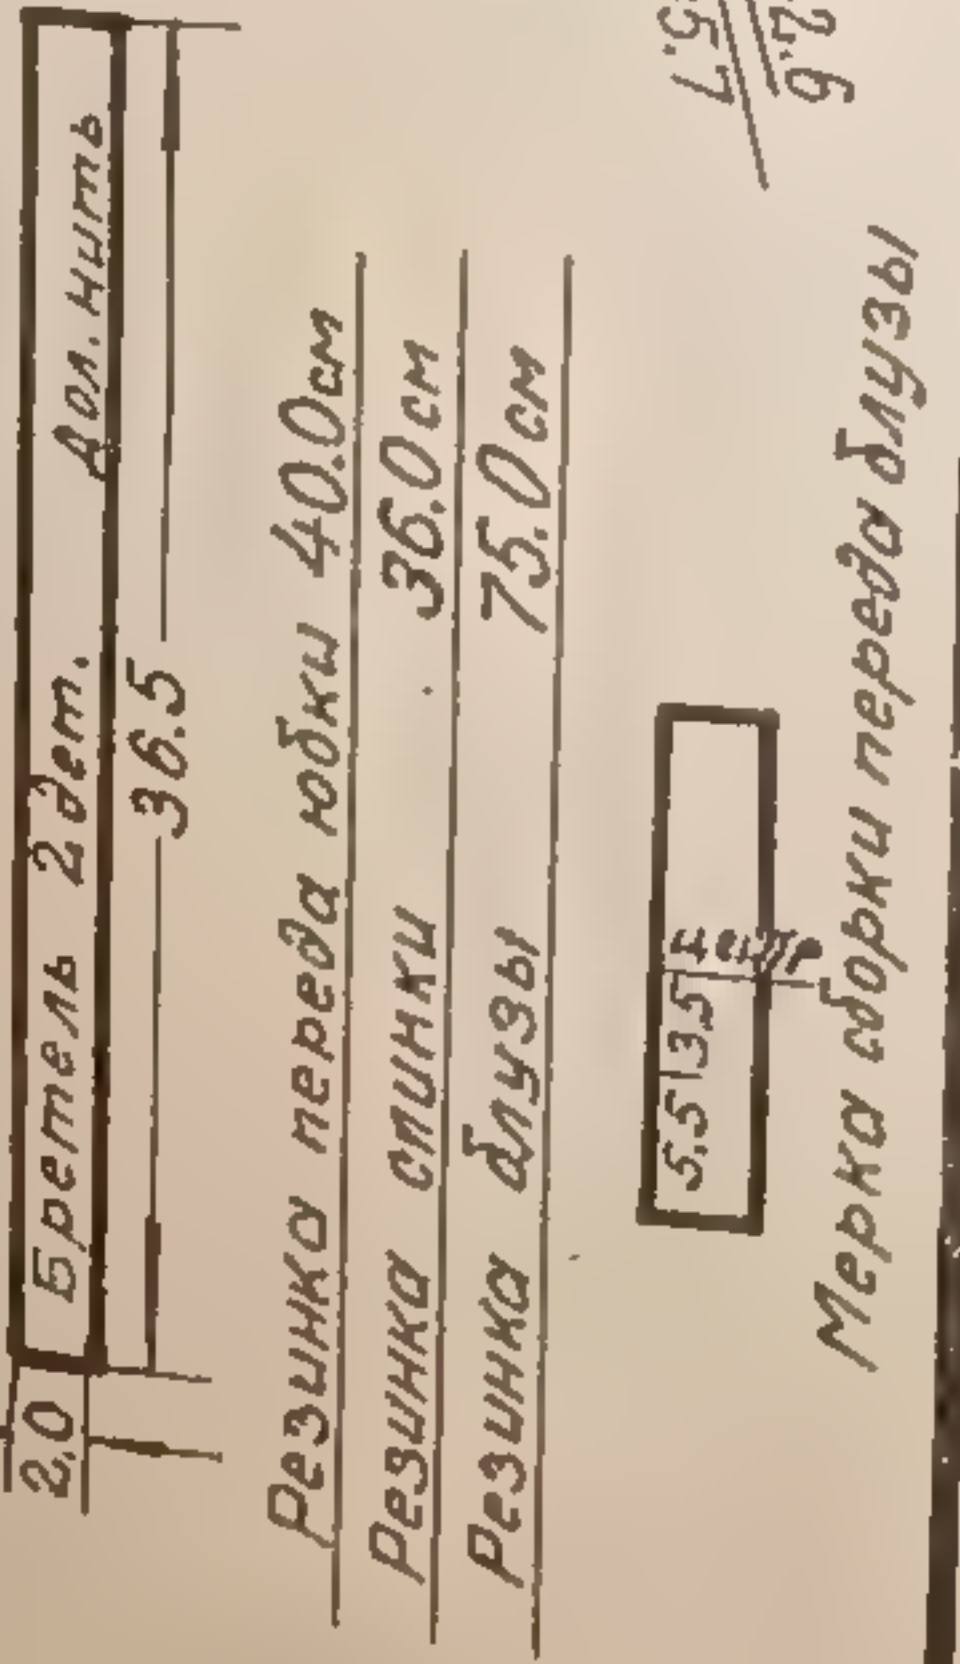 2,0
Бретель 2 дет. Дол. нить
36.5
Резинка переда юбки 40.0 см
Резинка спинки 36.0 см
Резинка блузы 75.0 см
5.5 3,5 центр
Мерка сборки переда блузы
5.7
2.6